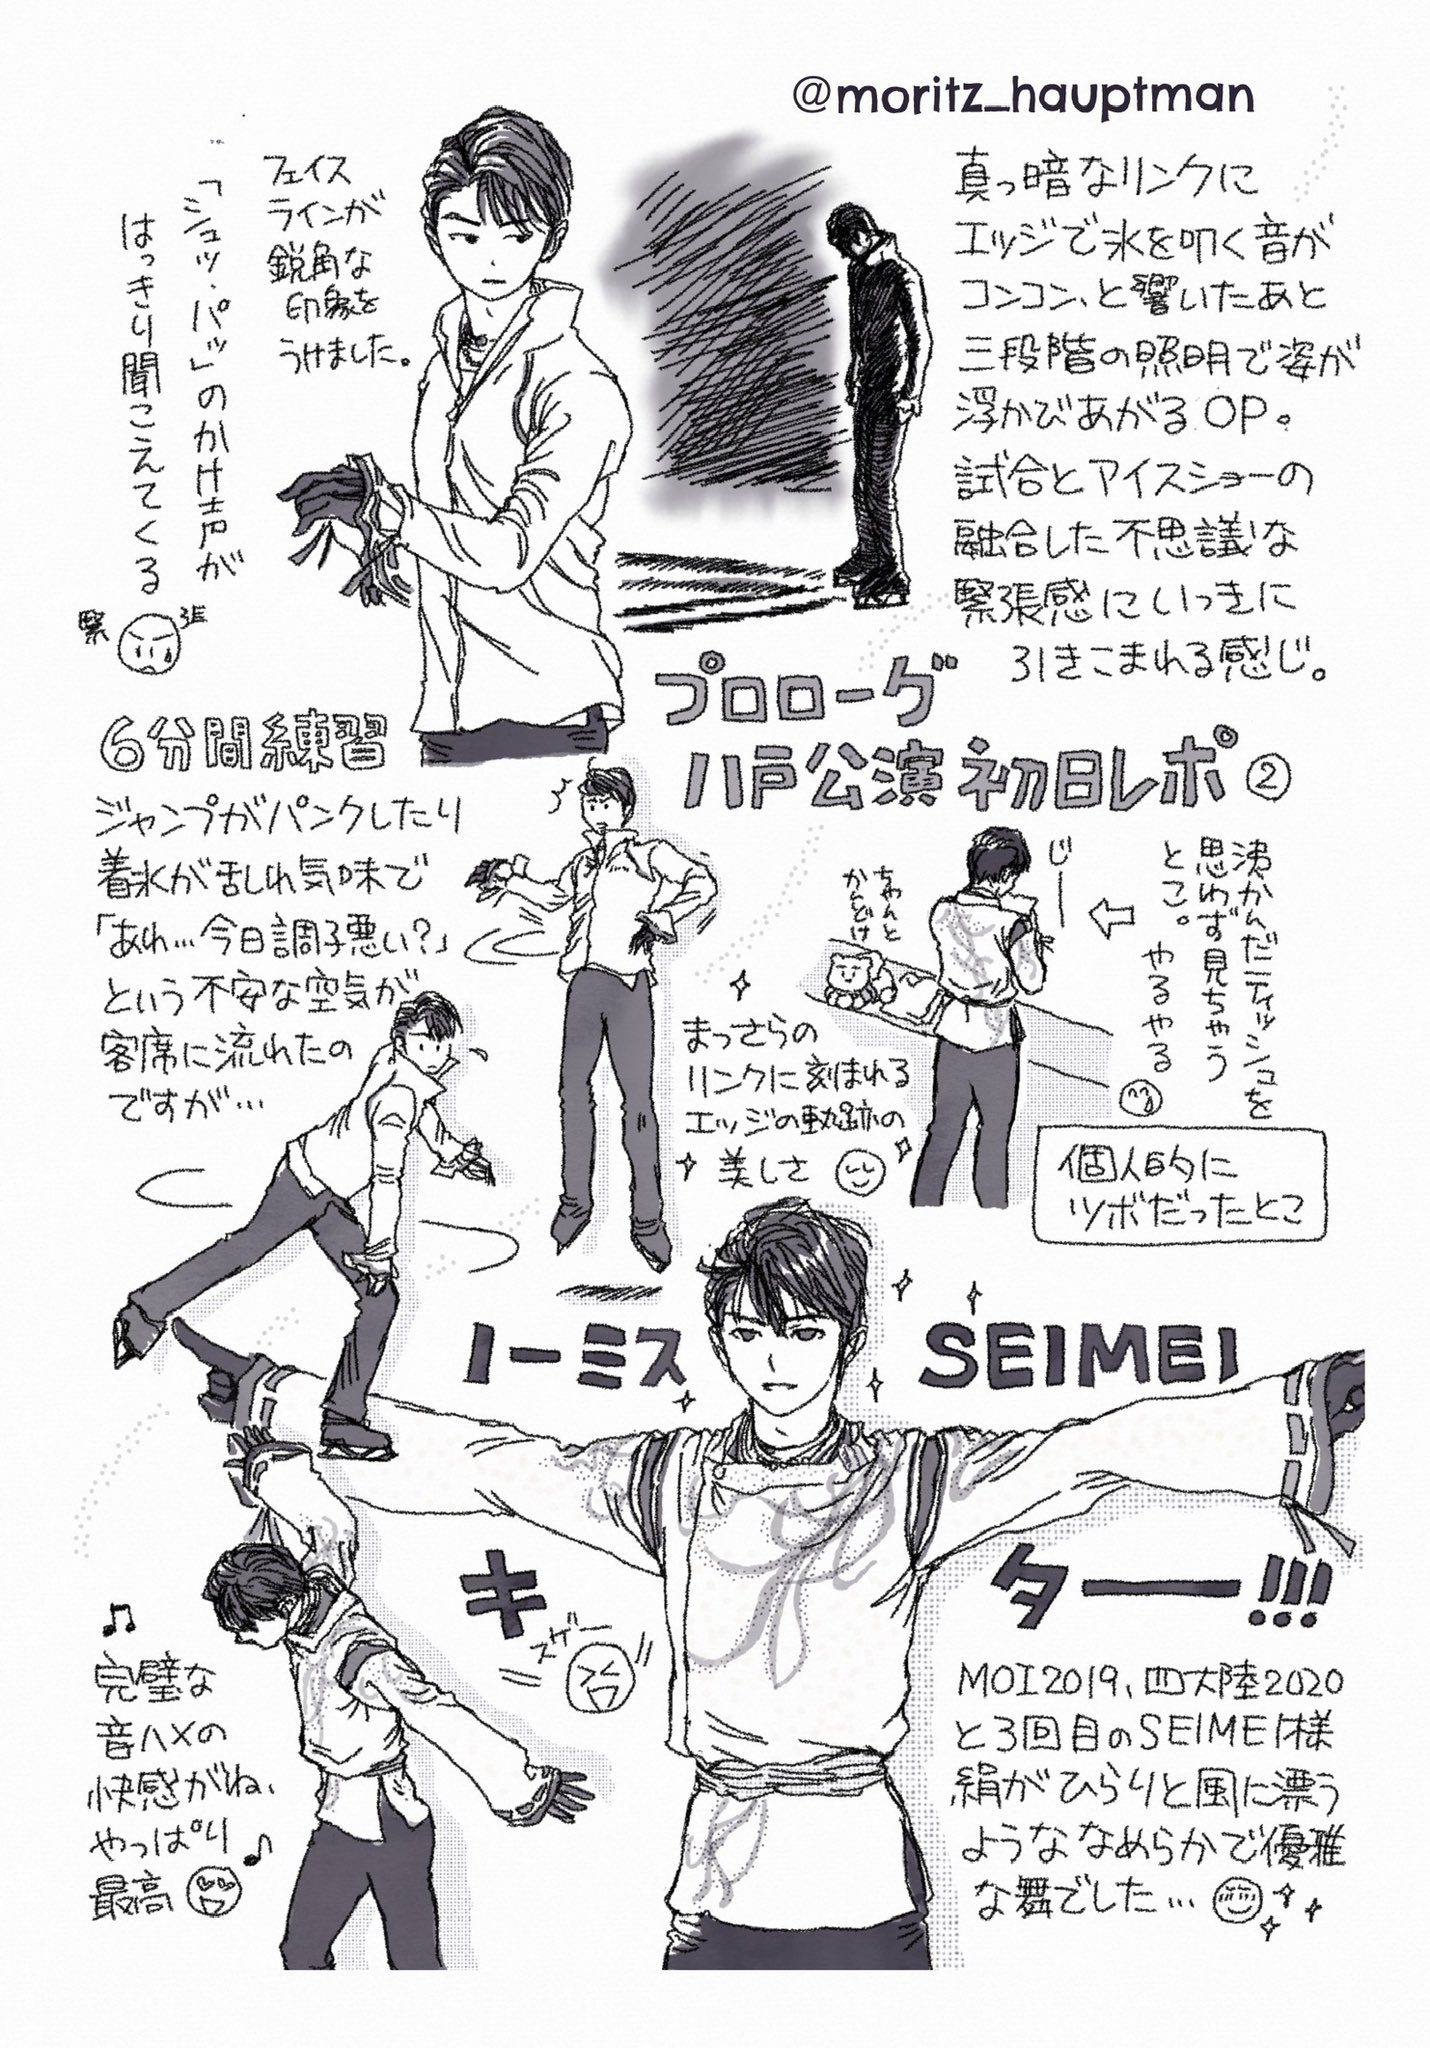 @moritz_hauptman
真っ暗なリンクに
エッジで氷を叩く音が
コンコン、と響いたあと
三段階の照明で姿が
浮かびあがるOP。
試合とアイスショーの
融合した不思議な
緊張感にいっきに
引きこまれる感じ。
フェイス
ラインが
鋭角な
印象を
うけました。
「シュッ・パッ」のかけ声が
はっきり聞こえてくる
緊張
プロローグ
八戸公演初日レポ②
6分間練習
ジャンプがパンクしたり
着氷が乱れ気味で
「あれ…今日調子悪い?」
という不安な空気が
客席に流れたの
ですが…
洟かんだティッシュを
思わず見ちゃう
とこ。
やるやる
じー
ちゃんと
かんどけ
個人的に
ツボだったとこ
まっさらの
リンクに刻まれる
エッジの軌跡の
美しさ
ノーミス SEIMEI
キターー!!!
スザー
完璧な
音ハメの
快感がね、
やっぱり
最高
MOI2019、四大陸2020
と3回目のSEIMEI様
絹がひらりと風に漂う
ようななめらかで優雅
な舞でした…